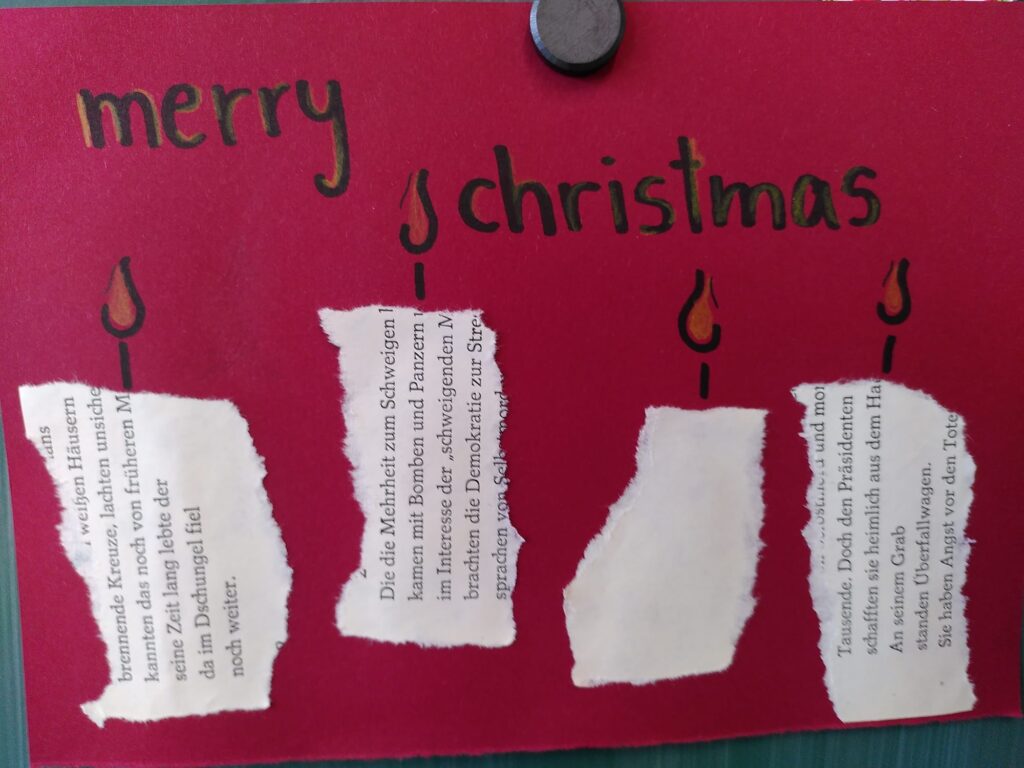 merry
christmas
weißen Häusern
brennende Kreuze, lachten unsiche
kannten das noch von früheren M
seine Zeit lang lebte der
da im Dschungel fiel
noch weiter.
Die die Mehrheit zum Schweigen
kamen mit Bomben und Panzern
im Interesse der „schweigenden M
brachten die Demokratie zur Stre
sprachen von Selbstmord
und mor
Tausende. Doch den Präsidenten
schafften sie heimlich aus dem Ha
An seinem Grab
standen Überfallwagen.
Sie haben Angst vor den Tote